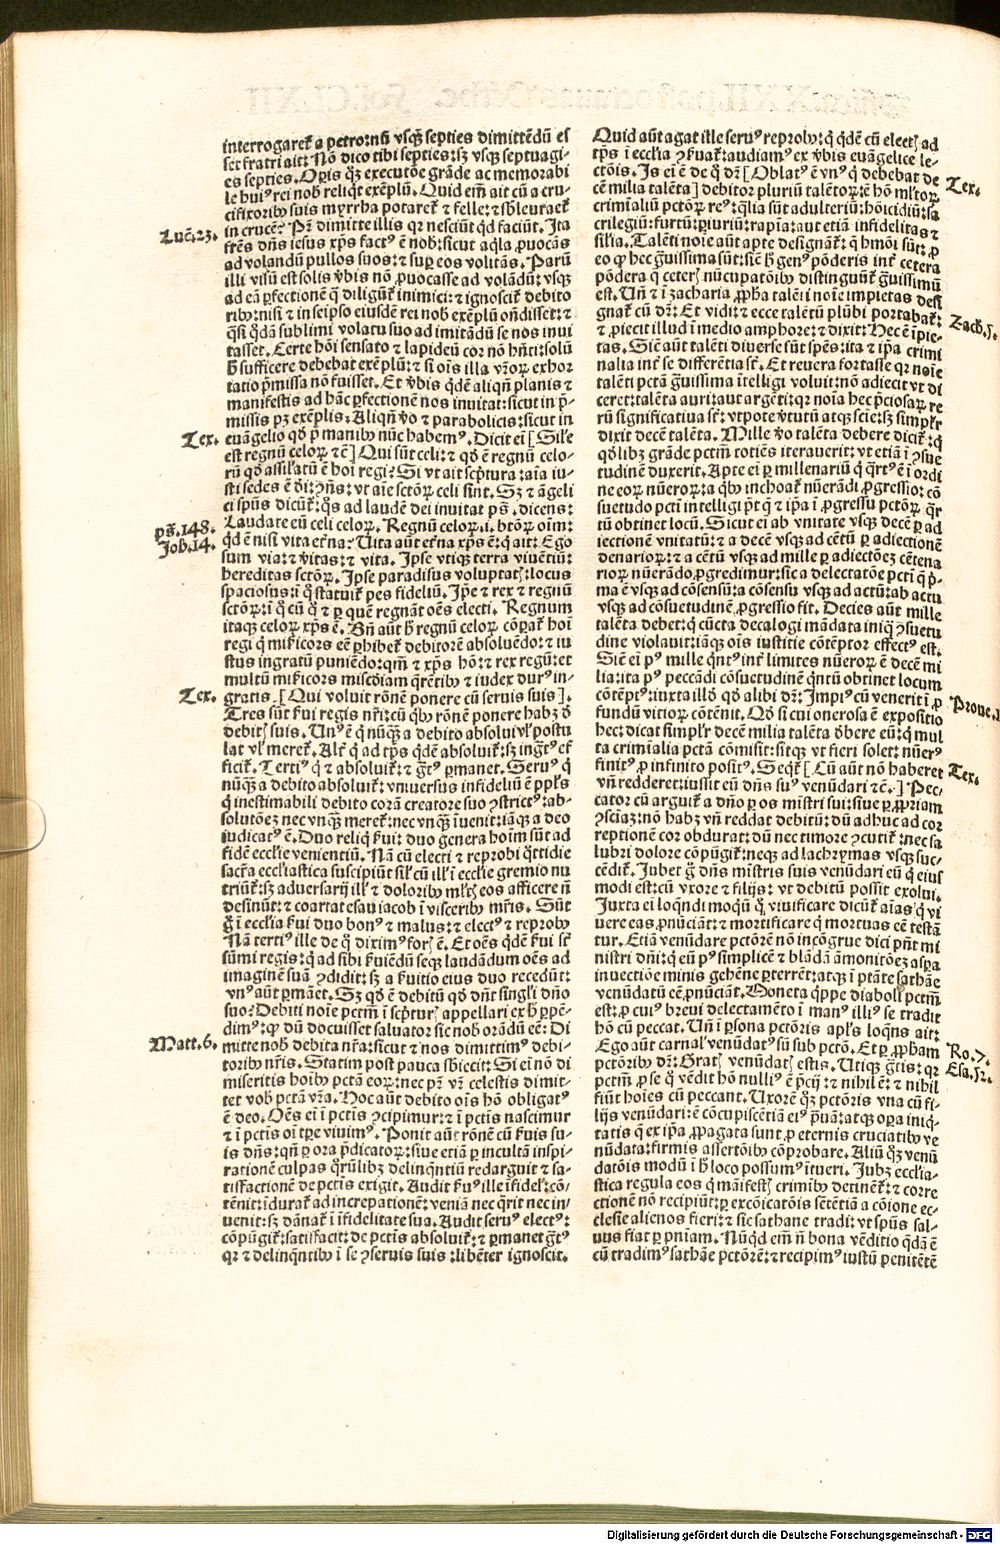 interrogaret̃ a petro: nũ vsq̃ septies dimittẽdũ es
set fratri ait: Nõ dico tibi septies: sʒ vsq̃ septuagi-
es septies. Opis q̃ʒ executõe grãde ac memorabi
le huiꝰ rei nob̃ reliq̃t exẽplũ. Quid em̃ ait cũ a cru-
cifixorib᷒ suis myrrha potaret̃ & felle: & sb̃leuaret̃
Luc̃.23. in cruce? Pr̃ dimitte illis qz nesciũt qd̃ faciũt. Ita
frẽs dñs iesus xp̃s factꝰ ẽ nob̃: sicut aq̃la ꝓuocãs
ad volandũ pullos suos: & suꝑ eos volitãs. Parũ
illi visũ est solis v̓bis nõ ꝓuocasse ad volãdũ: vsq̃
ad eã ꝑfectionẽ q̃ diligũt̃ inimici: & ignoscit̃ debito
rib᷒: nisi & in seipso eiusdẽ rei nob̃ exẽplũ oñdisset: &
q̃si q̃dã sublimi volatu suo ad imitãdũ se nos inui
tasset. Certe hõi sensato & lapideũ cor nõ hñti: solũ
h̃ sufficere debebat exẽplũ: & si oĩs illa v̓boꝝ exhor
tatio p̃missa nõ fuisset. Et v̓bis q̃dẽ aliqñ planis &
manifestis ad hãc ꝑfectionẽ nos inuitat: sicut in p̃-
missis pʒ exẽplis. Aliqñ v̓o & parabolicis: sicut in
Tex. euãgelio qd̃ p̃ manib᷒ nũc habemꝰ. Dicit em̃ [Sil̃e
est regnũ celoꝝ &c̃] Qui sũt celi: & qd̃ ẽ regnũ celo-
rũ qd̃ assil̃atũ ẽ hoĩ regi? Si vt ait scp̃tura: aĩa iu-
sti sedes ẽ dei: ꝯñs: vt aĩe sctõꝝ celi sint. Sʒ & ãgeli
ci sp̃us dicũt̃: q̃s ad laudẽ dei inuitat ps̃. dicens:
ps̃.148. Laudate eũ celi celoꝝ. Regnũ celoꝝ .i. btõꝝ oĩm:
Job̃.14. qd̃ ẽ nisi vita et̓na? Vita aũt et̓na xp̃s ẽ: q̃ ait: Ego
sum via: & v̓itas: & vita. Ipse vtiq̃ terra viuẽtiũ:
hereditas sctõꝝ. Ipse paradisus voluptat̃: locus
spaciosus: ĩ q̃ statuit̃ pes fideliũ. Ip̃e & rex & regnũ
sctõꝝ: ĩ q̃ cũ q̃ & ꝑ quẽ regnãt oẽs electi. Regnum
itaq̃ celoꝝ xp̃s ẽ. Bñ aũt h̃ regnũ celoꝝ cõꝑat̃ hoĩ
regi q̃ mis̃icors eẽ ꝑhibet̃ debitorẽ absoluẽdo: & iu
stus ingratũ puniẽdo: qm̃ & xp̃s hõ: & rex regũ: et
multũ mis̃icors misc̃diam q̃rẽtib᷒ & iudex durꝰ in-
Tex. gratis. [Qui voluit rõnẽ ponere cũ seruis suis].
Tres sũt s̓ui regis nr̃i: cũ q̃b᷒ rõnẽ ponere habʒ d̃
debit̃ suis. Unꝰ ẽ q̃ nũq̃ a debito absolui vl̃ postu
lat vl̃ meret̃. Alt̓ q̃ ad tp̃s q̃dẽ absoluit̃: sʒ ingr̃tꝰ ef
ficit̃. Tertiꝰ q̃ & absoluit̃: & gr̃tꝰ ꝑmanet. Seruꝰ q̃
nũq̃ a debito absoluit̃: vniuersus infideliũ ẽ ppl̃s
q̃ inestimabili debito corã creatore suo ꝯstrictꝰ: ab-
solutõeʒ nec vnq̃ meret̃: nec vnq̃ ĩuenit: iãq̃ a deo
iudicatꝰ ẽ. Duo reliq̃ s̓ui: duo genera hoĩm sũt ad
fidẽ eccl̃ie venientiũ. Nã cũ electi & reprobi q̃ttidie
sacr̃a eccl̃iastica suscipiũt sil̃ cũ ill̃ ĩ eccl̃ie gremio nu
triũt̃: sʒ aduersarij ill̃ & dolorib᷒ ml̃t̃ eos afficere ñ
desinũt: & coartat esau iacob ĩ viscerib᷒ mr̃is. Sũt
g̃ ĩ eccl̃ia s̓ui duo bonꝰ & malus: & electꝰ & reprob᷒
Nã tertiꝰ ille de q̃ diximꝰ for̃ ẽ. Et oẽs q̃dẽ s̓ui st̃
sũmi regis: q̃ ad sibi s̓uiẽdũ seq̃ laudãdum oẽs ad
imaginẽ suã ꝯdidit: sʒ a s̓uitio eius duo recedũt:
vnꝰ aũt ꝑmãet. Sʒ qd̃ ẽ debitũ qd̃ dñt singl̃i dño
suo? Debiti noĩe pctm̃ ĩ scp̃tur̃ appellari ex h̃ ꝑpẽ-
dimꝰ: qꝫ dũ docuisset saluator sic nob̃ orãdũ eẽ: Di
Matt.6. mitte nob̃ debita nr̃a: sicut & nos dimittimꝰ debi-
torib᷒ nr̃is. Statim post pauca sb̃iecit: Si em̃ nõ di
miseritis hoĩb᷒ pctã eoꝝ: nec pr̃ vr̃ celestis dimit-
tet vob̃ pctã vr̃a. Hoc aũt debito oĩs hõ obligatꝰ
ẽ deo. Oẽs em̃ ĩ pctĩs ꝯcipimur: & ĩ pctĩs nascimur
& ĩ pctĩs oĩ tp̃re viuimꝰ. Ponit aũt rõnẽ cũ s̓uis su-
is dñs: qñ ꝑ ora p̃dicatoꝝ: siue etiã ꝑ incultã inspi-
rationẽ culpas q̃rũlib᷒ delinq̃ntiũ redarguit & sa-
tisfactionẽ de pctĩs exigit. Audit s̓uꝰ ille ĩfidel̃: cõ-
tẽnit: ĩdurat̃ ad increpationẽ: veniã nec q̃rit nec in-
uenit: sʒ dãnat̃ ĩ ĩfidelitate sua. Audit seruꝰ electꝰ:
cõpũgit̃: satisfacit: de pctĩs absoluit̃: & ꝑmanet gr̃tꝰ
qz & delinq̃ntib᷒ ĩ se ꝯseruis suis: libẽter ignoscit.
Quid aũt agat ille seruꝰ reprob᷒: q̃ q̃dẽ cũ elect̃ ad
tp̃s ĩ eccl̃ia ꝯs̓uat̃: audiamꝰ ex v̓bis euãgelice le-
ctõis. Is em̃ ẽ de q̃ dr̃ [Oblatꝰ ẽ vnꝰ q̃ debebat de Tex.
cẽ milia talẽta] debitor pluriũ talẽtoꝝ: ẽ hõ ml̃toꝝ
crimĩaliũ pctõꝝ reꝰ: q̃lia sũt adulteriũ: hõicidiũ: sa
crilegiũ: furtũ: ꝑiuriũ: rapĩa: aut etiã infidelitas &
sil̃ia. Talẽti noĩe aũt apte desig̃nãt̃: q̃ hmõi sũt: ꝓ
eo q̃ hec g̃uissima sũt: sic̃ h̃ gen̓ põderis int̓ cetera
põdera q̃ ceter̃ nũcupatõib᷒ distinguũt̃ g̃uissimũ
est. Uñ & ĩ zacharia ꝓpha talẽti noĩe impietas desi
gnat̃ cũ dr̃: Et vidi: & ecce talẽtũ plũbi portabat̃: Zach̃.5.
& ꝓiecit illud ĩ medio amphore: & dixit: Hec ẽ ĩpie-
tas. Sic̃ aũt talẽti diuerse sũt sp̃es: ita & ip̃a crimi
nalia int̓ se differẽtia st̃. Et reuera fortasse qz noĩe
talẽti pctã g̃uissima ĩtelligi voluit: nõ adiecit vt di
ceret: talẽta auri: aut argẽti: qz noĩa hec p̃ciosaꝝ re
rũ significatiua st̃: vtpote v̓tutũ atq̃ scie: sʒ simplr̃
dixit decẽ talẽta. Mille v̓o talẽta debere dicit̃: q̃
qd̃libʒ grãde pctm̃ toties iterauerit: vt etiã ĩ ꝯsue
tudinẽ duxerit. Apte em̃ ꝑ millenariũ q̃ q̃rtꝰ ẽ ĩ ordi
ne eoꝝ nũeroꝝ: a q̃b᷒ inchoat̃ nũerãdi ꝓgressio: cõ
suetudo pcti intelligi p̃t q̃ & ip̃a ĩ ꝓgressu pctõꝝ q̃r
tũ obtinet locũ. Sicut em̃ ab vnitate vsq̃ decẽ ꝑ ad
iectionẽ vnitatũ: & a decẽ vsq̃ ad cẽtũ ꝑ adiectionẽ
denarioꝝ: & a cẽtũ vsq̃ ad mille ꝑ adiectõeʒ cẽtena
rioꝝ nũerãdo ꝓgredimur: sic a delectatõe pcti q̃ p̃-
ma ẽ vsq̃ ad cõsensũ: a cõsensu vsq̃ ad actũ: ab actu
vsq̃ ad cõsuetudinẽ ꝓgressio fit. Decies aũt mille
talẽta debet: q̃ cũcta decalogi mãdata iniq̃ ꝯsuetu
dine violauit: iãq̃ oĩs iustitie cõtẽptor effectꝰ est.
Sic̃ em̃ pꝰ mille q̃ntꝰ int̓ limites nũeroꝝ ẽ decẽ mi
lia: ita pꝰ peccãdi cõsuetudinẽ q̃ntũ obtinet locum
cõtẽptꝰ: iuxta illd̃ qd̃ alibi dr̃: Impiꝰ cũ venerit ĩ ꝓ Proue.1
fundũ vitioꝝ cõtẽnit. Qd̃ si cui onerosa ẽ expositio
hec: dicat simplr̃ decẽ milia talẽta d̃bere eũ: q̃ mul
ta crimĩalia pctã cõmisit: sitq̃ vt fieri solet: nũerꝰ
finitꝰ ꝓ infinito positꝰ. Seqt̃ [Cũ aũt nõ haberet Tex.
vñ redderet: iussit eũ dñs suꝰ venũdari &c̃.] Pec-
cator cũ arguit̃ a dño ꝑ os mĩstri sui: siue ꝑ ꝓpriam
ꝯsciãʒ: nõ habʒ vñ reddat debitũ: dũ adhuc ad cor
reptionẽ cor obdurat: dũ nec timore ꝯcutit̃: nec sa
lubri dolore cõpũgit̃: neq̃ ad lachrymas vsq̃ suc-
cẽdit̃. Jubet g̃ dñs mĩstris suis venũdari eũ q̃ eius
modi est: cũ vxore & filijs: vt debitũ possit exolui.
Juxta em̃ loq̃ndi moqũ q̃ viuificare dicũt̃ aĩas q̃ vi
uere eas ꝓnũciãt: & mortificare q̃ mortuas eẽ testã
tur. Etiã venũdare pctõrẽ nõ incõgrue dici pñt mi
nistri dñi: q̃ eũ pꝰ simplicẽ & blãdã ãmonitõeʒ aspa
inuectiõe minis gehẽne ꝑterrẽt: atq̃ ĩ ptãte sathãe
venũdatũ eẽ ꝓnũciãt. Moneta q̃ppe diaboli pctm̃
est: ꝓ cuiꝰ breui delectamẽto ĩ manꝰ illiꝰ se tradit
hõ cũ peccat. Uñ ĩ ꝑsona pctõris apl̃s loq̃ns ait:
Ego aũt carnal̃ venũdatꝰ sũ sub pctõ. Et ꝑ ꝓpham Ro.7.
pctõrib᷒ dr̃: Grat̃ venũdat̃ estis. Utiq̃ gr̃tis: qz Esa.52.
pctm̃ ꝓ se q̃ vẽdit hõ nulliꝰ ẽ p̃cij: & nihil ẽ: & nihil
fiũt hoĩes cũ peccant. Uxorẽ q̃ʒ pctõris vna cũ fi-
lijs venũdari: ẽ cõcupiscẽtiã eiꝰ p̃uã: atq̃ oꝑa iniq̃-
tatis q̃ ex ip̃a ꝓpagata sunt ꝓ eternis cruciatib᷒ ve
nũdata: firmis assertõib᷒ cõprobare. Aliũ q̃ʒ venũ
datõis modũ ĩ h̃ loco possumꝰ ĩtueri. Jubʒ eccl̃ia-
stica regula eos q̃ manifest̃ crimib᷒ detinẽt̃: & corre
ctionẽ nõ recipiũt: ꝑ excõicatõis sẽtẽtiã a cõione ec-
clesie alienos fieri: & sic sathane tradi: vt sp̃us sal-
uus fiat ꝑ pñiam. Nũqd̃ em̃ ñ bona vẽditio q̃dã ẽ
cũ tradimꝰ sathãe pctõrẽ: & recipimꝰ iustũ penitẽtẽ
Digitalisierung gefördert durch die Deutsche Forschungsgemeinschaft - DFG